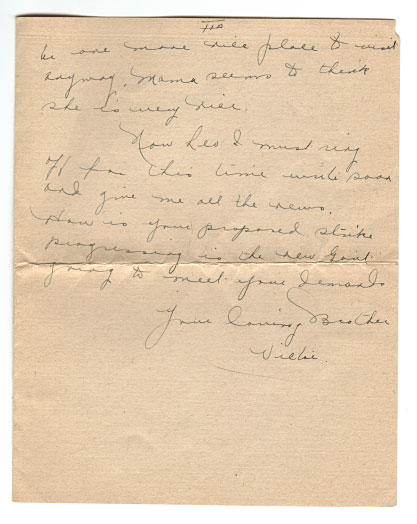 be one more nice place to visit
anyway, Mama seems to think
she is very nice.
Now Leo I must ring
off for this time write soon
and give me all the news.
How is your proposed strike
progressing is the new Govt
going to meet your demands
Your loving Brother